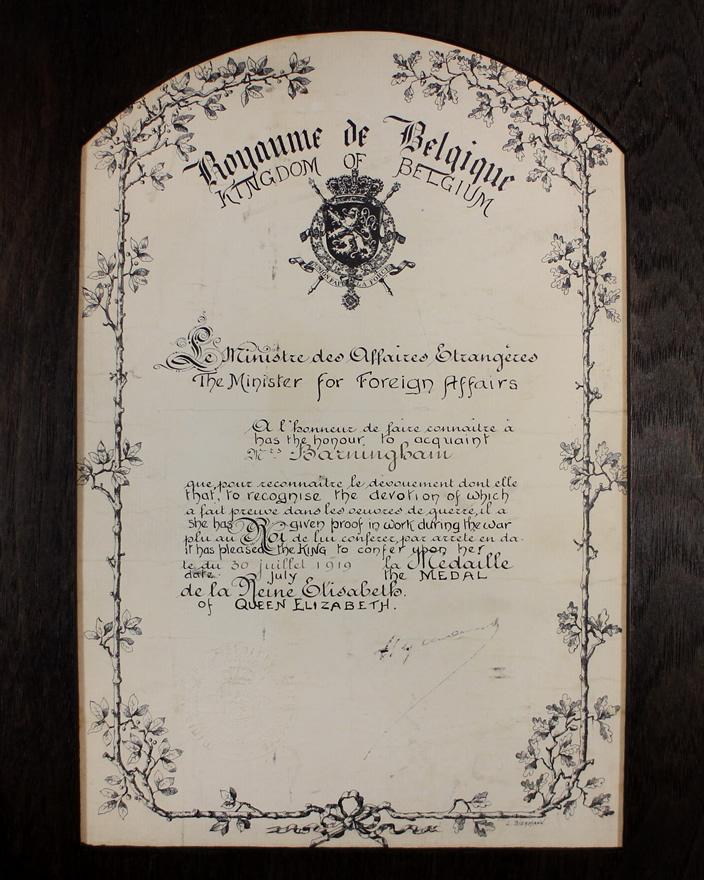 Royaume de Belgique
KINGDOM OF BELGIUM
Le Ministre des Affaires Etrangères
The Minister for Foreign Affairs
A l'honneur de faire connaitre à
has the honour to acquaint
Mrs Barningham
que, pour reconnaître le dévouement dont elle
that, to recognise the devotion of which
a fait preuve dans les oeuvres de guerre, il a
she has given proof in work during the war
plu au Roi de lui conférer, par arrêté en da-
it has pleased the KING to confer upon her
te du 30 juillet 1919 la Médaille
date July the MEDAL
de la Reine Elisabeth.
of QUEEN ELIZABETH.